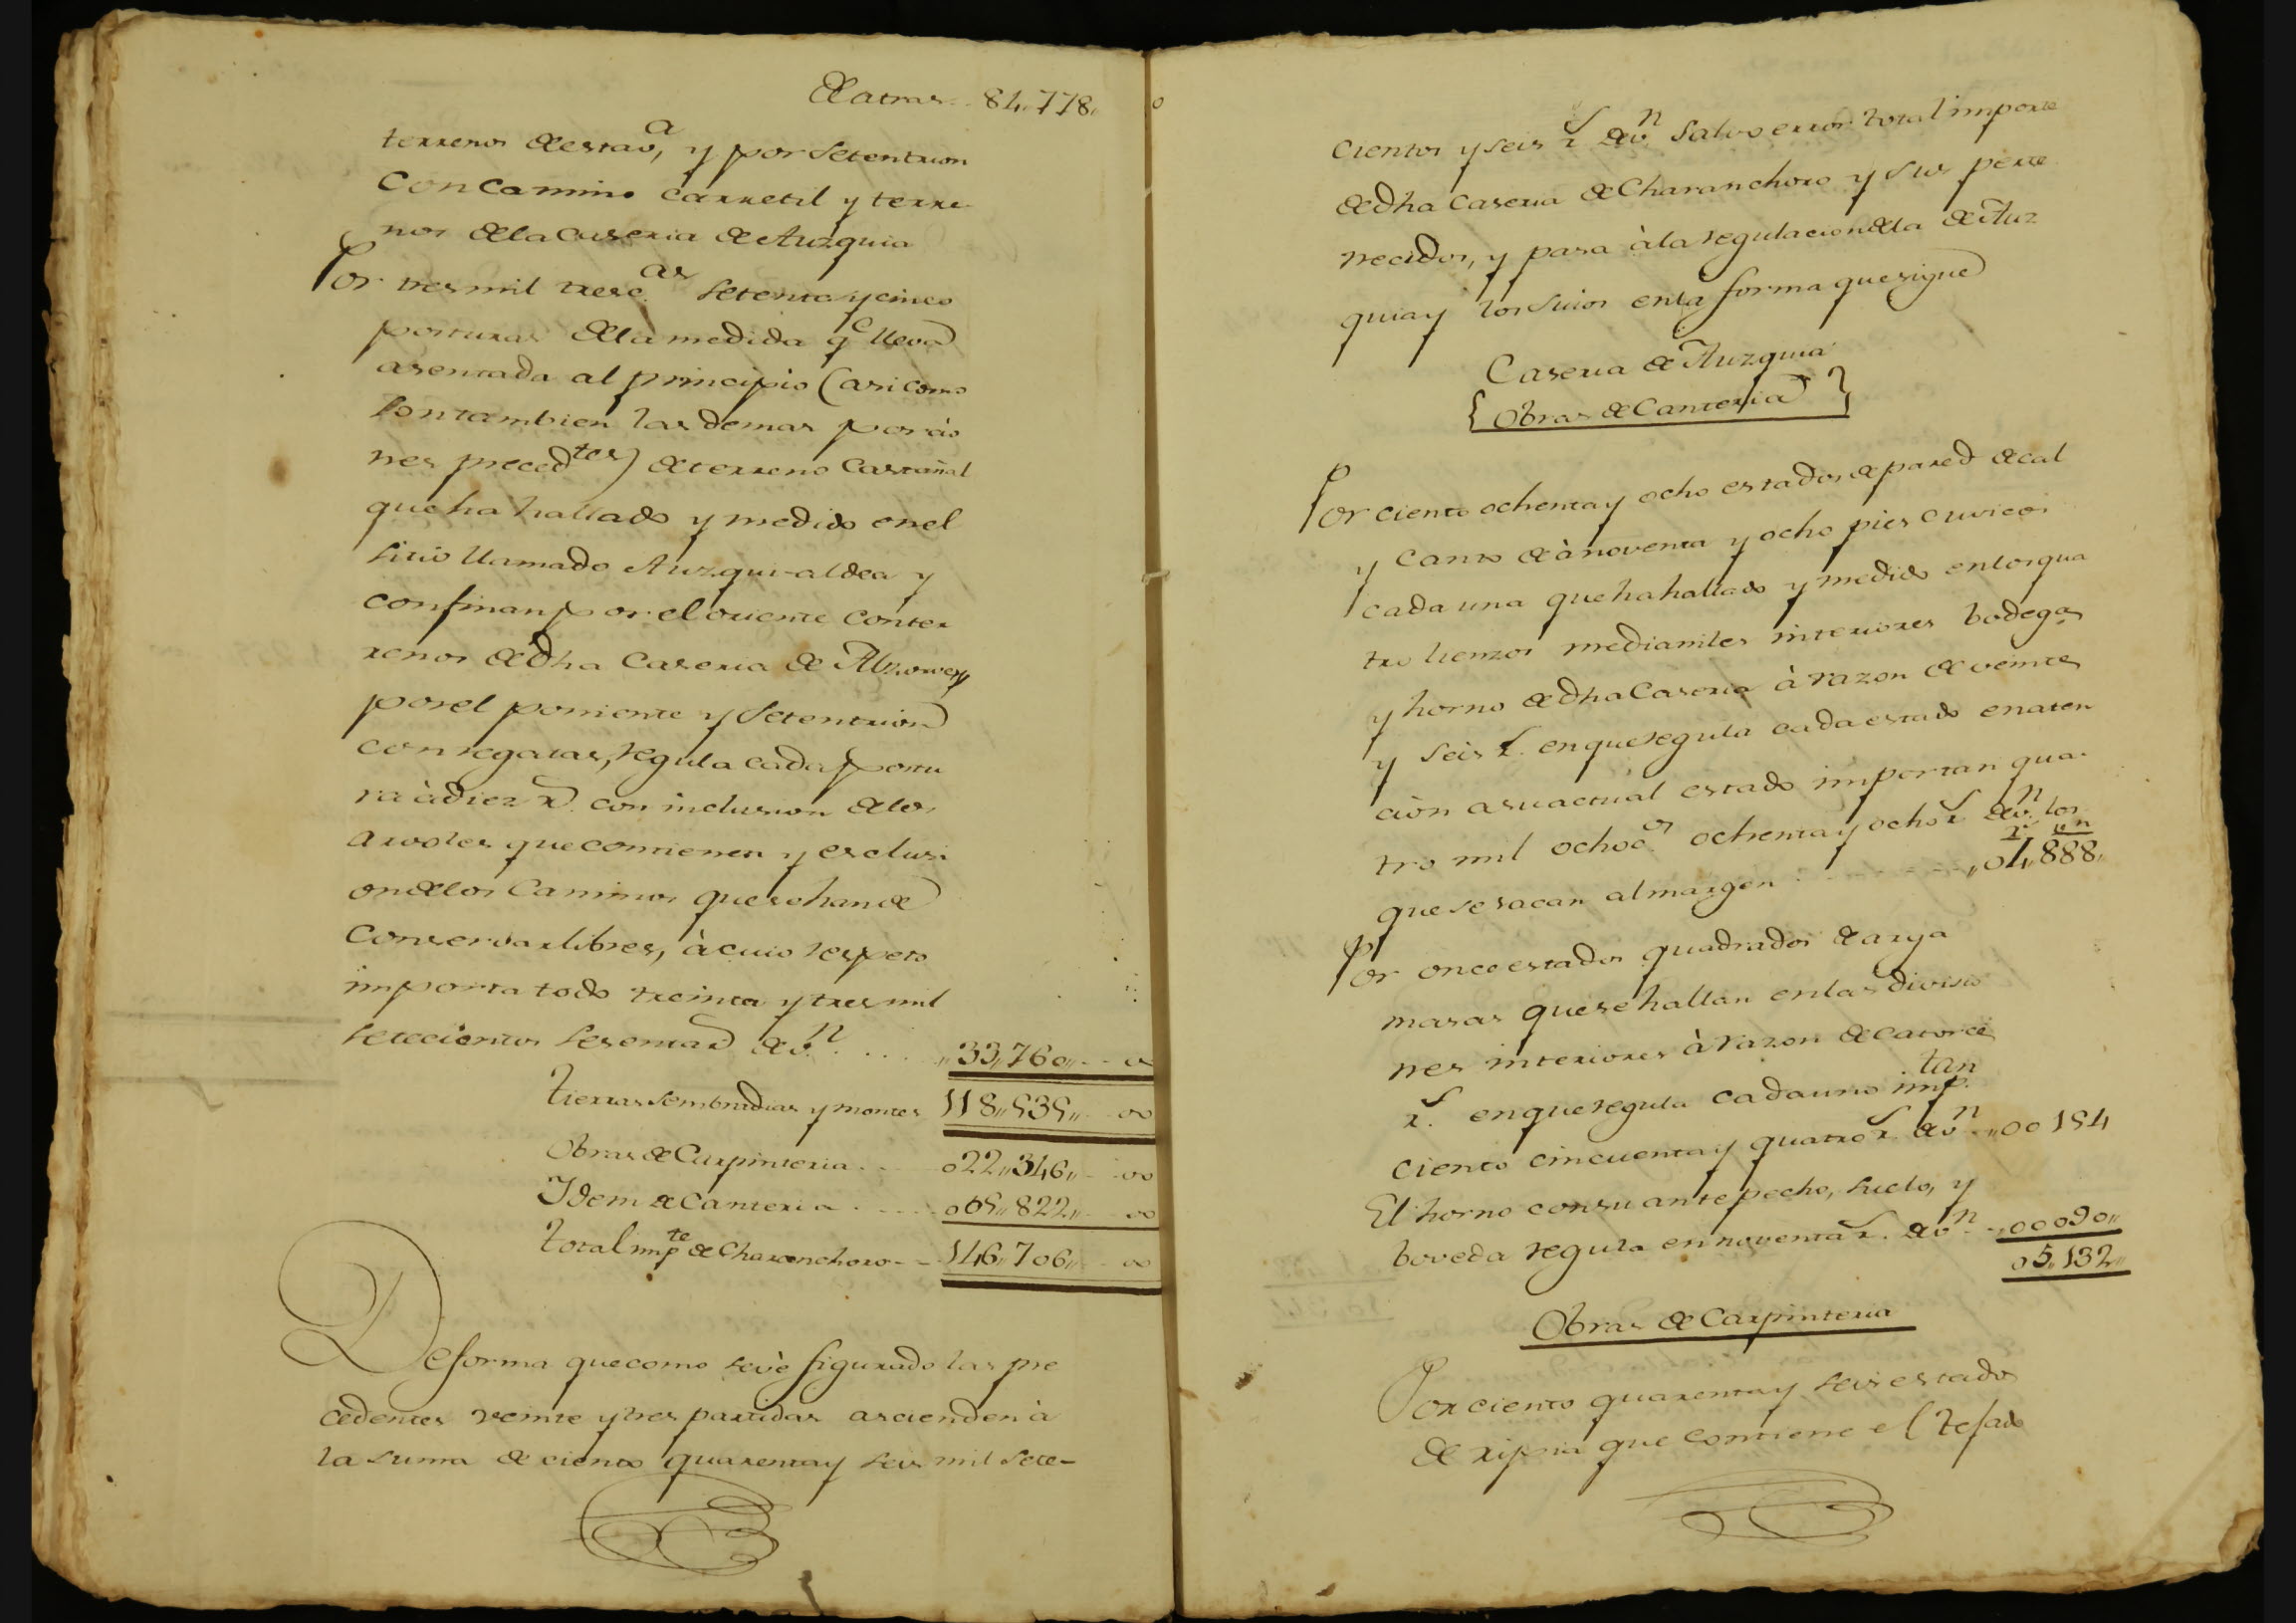 De atras.. 84,,778,,
terrenos de esta v.ª, y por Setentrion
con Camino carretil y terre
nos de la Caseria de Auzquia
Por tres mil tresc.as setenta y cinco
posturas de la medida q.e lleva
asentada al principio (asi como
son tambien las demas porcio
nes preced.tes) de terreno Castañal
que ha hallado y medido en el
sitio llamado Auzqui-aldea y
confinan por el oriente con ter
renos de dha Caseria de
por el poniente y Setentrion
con regatas, regula cada postu
ra à diez r.s con inclusion de los
arvoles que contienen y esclusi
on de los Caminos que se han de
conservar libres, à cuio respeto
importa todo treinta y tres mil
setecientos sesenta r.s de v.n .... ,,33,,760,,.. 00
Tierras sembradias y montes 118,,535,,.. 00
Obras de Carpinteria.. 022,,346,,.. 00
Idem de Canteria..... 005,,822,,.. 00
Total imp.te de Charanchoro.. 146,,706,,.. 00
De forma que como se vè figurado las pre
cedentes veinte y tres partidas ascienden à
la suma de ciento quarenta y seis mil sete-
cientos y seis r.s de v.n salvo error total importe
de dha Caseria de Charanchoro y sus perte
necidos, y pasa à la regulacion de la de Auz
quia y los suios en la forma que sigue
Caseria de Auzquia
{ Obras de Canteria }
Por ciento ochenta y ocho estados de pared de cal
y canto de à noventa y ocho pies cuvicos
cada una que ha hallado y medido en los qua
tro lienzos mediamiles interiores bodegas
y horno de dha Caseria à razon de veinte
y seis r.s en que regula cada estado en aten
ciòn a su actual estado importan qua-
tro mil ochoc.os ochenta y ocho r.s de v.n los
r.s v.n
que se sacan al margen ........ ,,04,,888,,
Por once estados quadrados de arga
masas que se hallan en las divisio
nes interiores à razon de catorce
r.s en que regula cada uno imp.tan
ciento cincuenta y quatro r.s de v.n ..,,00 154
El horno con su antepecho, suelo, y
boveda regula en noventa r.s de v.n ..,,00090,,
05,,132,,
Obras de Carpinteria
Por ciento quarenta y seis estados
de ripia que contiene el tejado